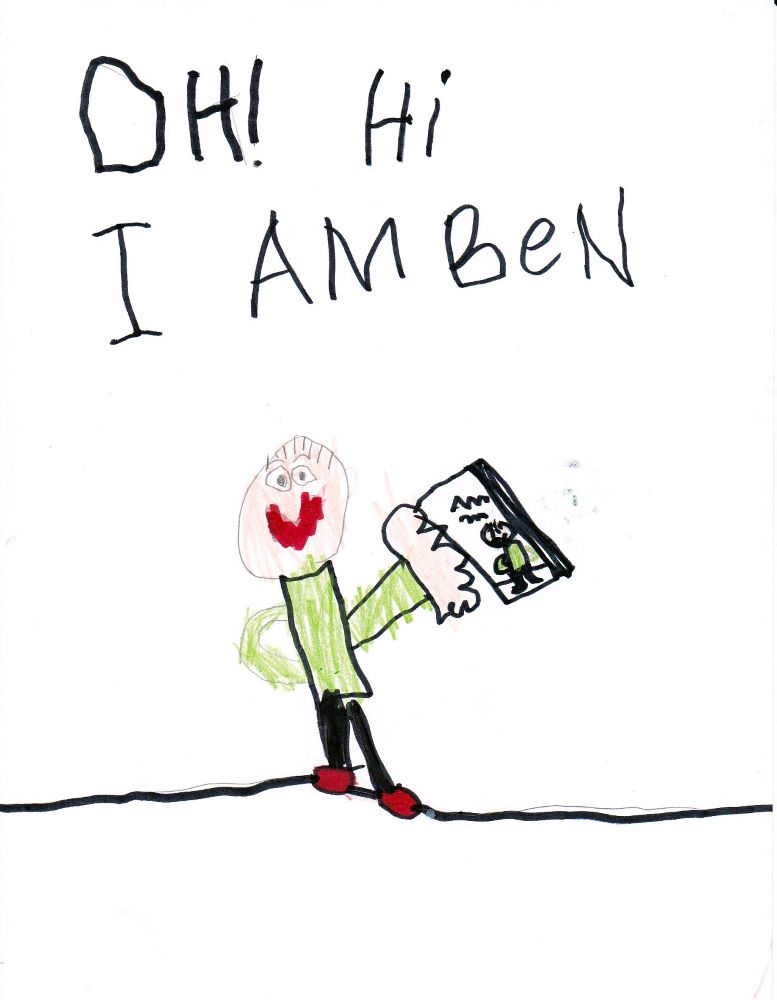 OH! Hi
I AM BeN